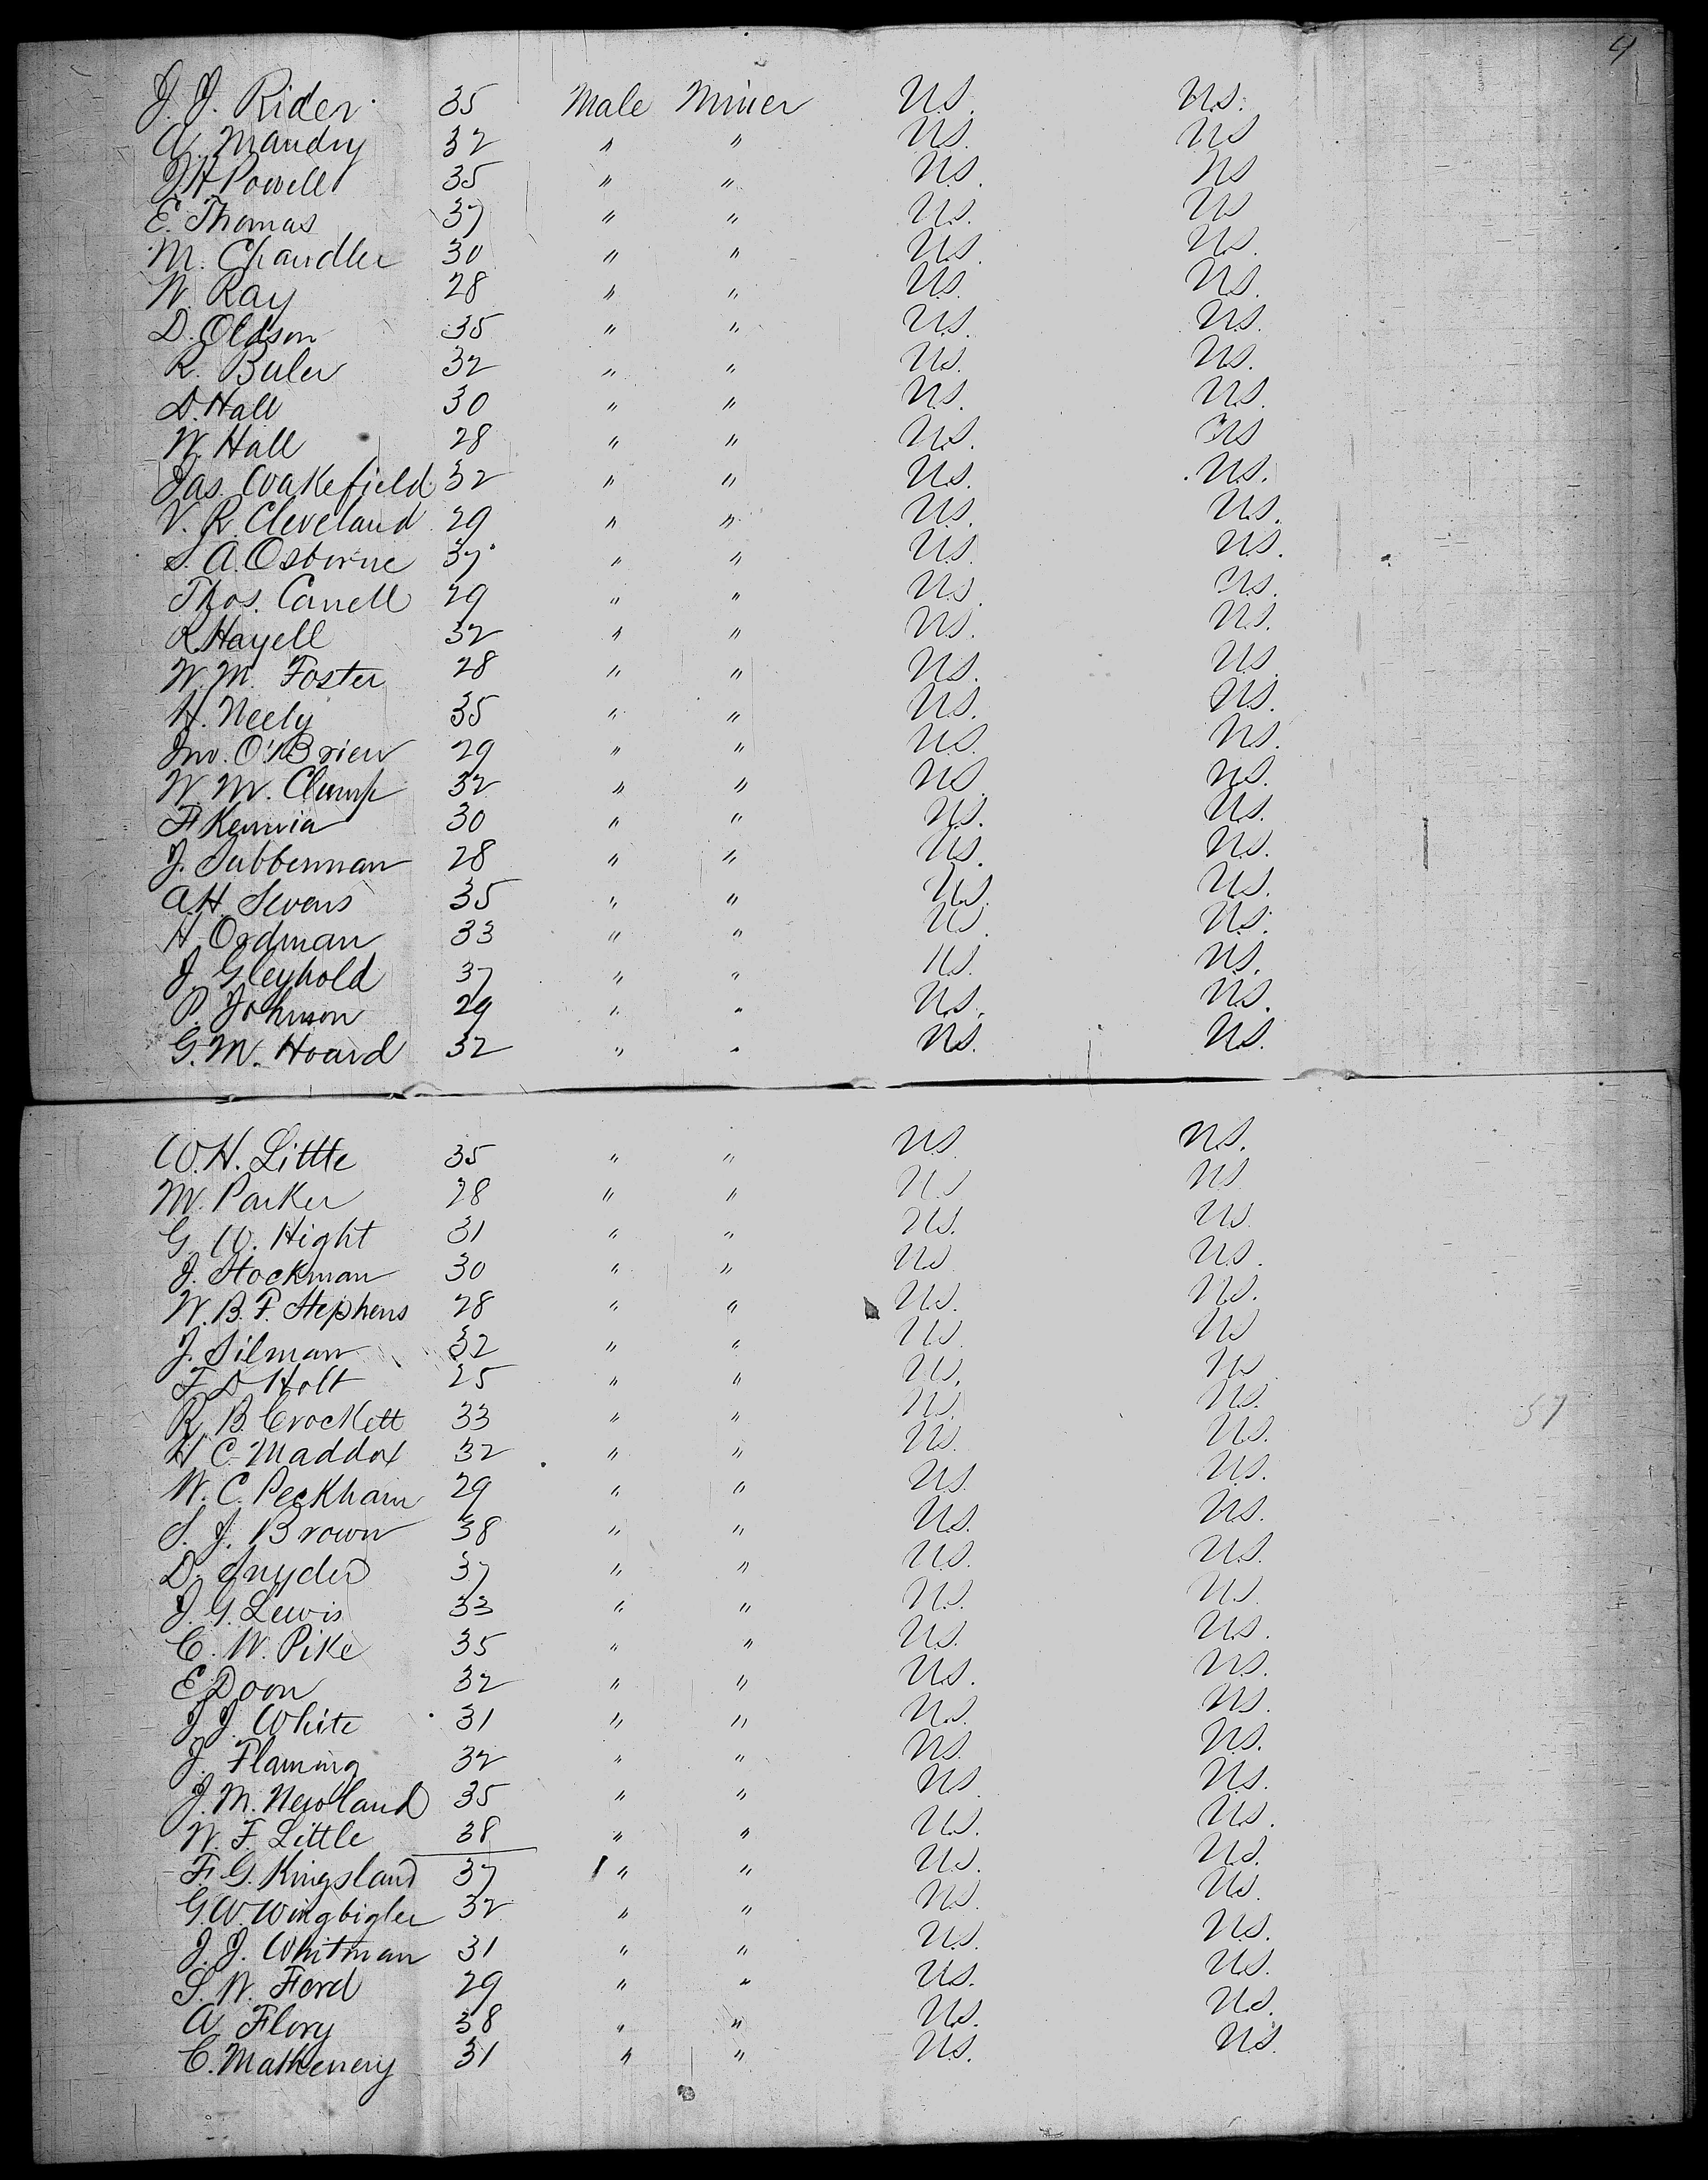 4
J. J. Rider 35 Male Miner U.S. U.S.
A. Mandry 32 " " U.S. U.S
J. H. Powell 35 " " U.S. U.S
E. Thomas 37 " " U.S. U.S
M. Chandler 30 " " U.S. U.S.
W. Ray 28 " " U.S. U.S.
D. Oldson 35 " " U.S. U.S.
R. Buler 32 " " U.S. U.S.
D. Hall 30 " " U.S. U.S.
W. Hall 28 " " U.S. U.S
Jas. Wakefield 32 " " U.S. U.S.
V. R. Cleveland 29 " " U.S. U.S.
S. A. Osborne 37 " " U.S. U.S.
Thos. Carrell 29 " " U.S. U.S.
R. Hayell 32 " " U.S. U.S.
W. M. Foster 28 " " U.S. U.S.
H. Neely 35 " " U.S. U.S.
Jno. O'Brien 29 " " U.S. U.S.
W. M. Clump 32 " " U.S. U.S.
F. 30 " " U.S. U.S.
J. Subberman 28 " " U.S. U.S.
A. H. Sevens 35 " " U.S. U.S.
H. Ordman 33 " " U.S. U.S.
J. Gleyhold 37 " " U.S. U.S.
P. Johnson 29 " " U.S. U.S.
G. M. Hoard 32 " " U.S. U.S.
W. H. Little 35 " " U.S. U.S.
M. Parker 28 " " U.S U.S
G. W. Hight 31 " " U.S. U.S.
J. Stockman 30 " " U.S U.S.
W. B. F. Stephens 28 " " U.S. U.S.
J. Silman 32 " " U.S. U.S
F. D. Holt 25 " " U.S. U.S
R. B. Crockett 33 " " U.S. U.S.
H C. Maddox 32 " " U.S. U.S.
W. C. Peckham 29 " " U.S. U.S.
S. J. Brown 38 " " U.S. U.S.
D. Snyder 37 " " U.S. U.S.
J. G. Lewis 33 " " U.S. U.S.
C. W. Pike 35 " " U.S. U.S.
E. Doon 32 " " U.S. U.S.
J. J. White 31 " " U.S. U.S.
J. Flaming 32 " " U.S. U.S.
J. M. Newland 35 " " U.S. U.S.
W. F. Little 38 " " U.S. U.S.
F. G. Kingsland 37 " " U.S. U.S.
G. W. Wingbigler 32 " " U.S. U.S.
J. J. Whitman 31 " " U.S. U.S.
S. W. Ford 29 " " U.S. U.S.
A Flory 38 " " U.S. U.S.
C. Mathenery 31 " " U.S. U.S.